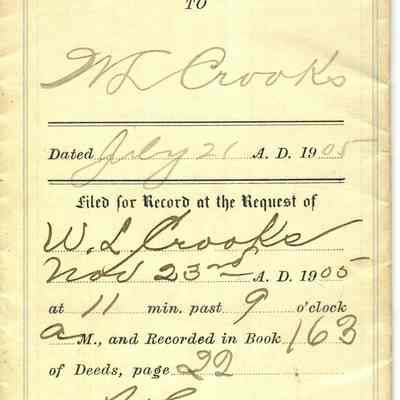 TO
W L Crooks
Dated July 21 A. D. 1905
Filed for Record at the Request of
W. L. Crooks
Nov 23rd A. D. 1905
at 11 min. past 9 o'clock
a M., and Recorded in Book 163
of Deeds, page 22